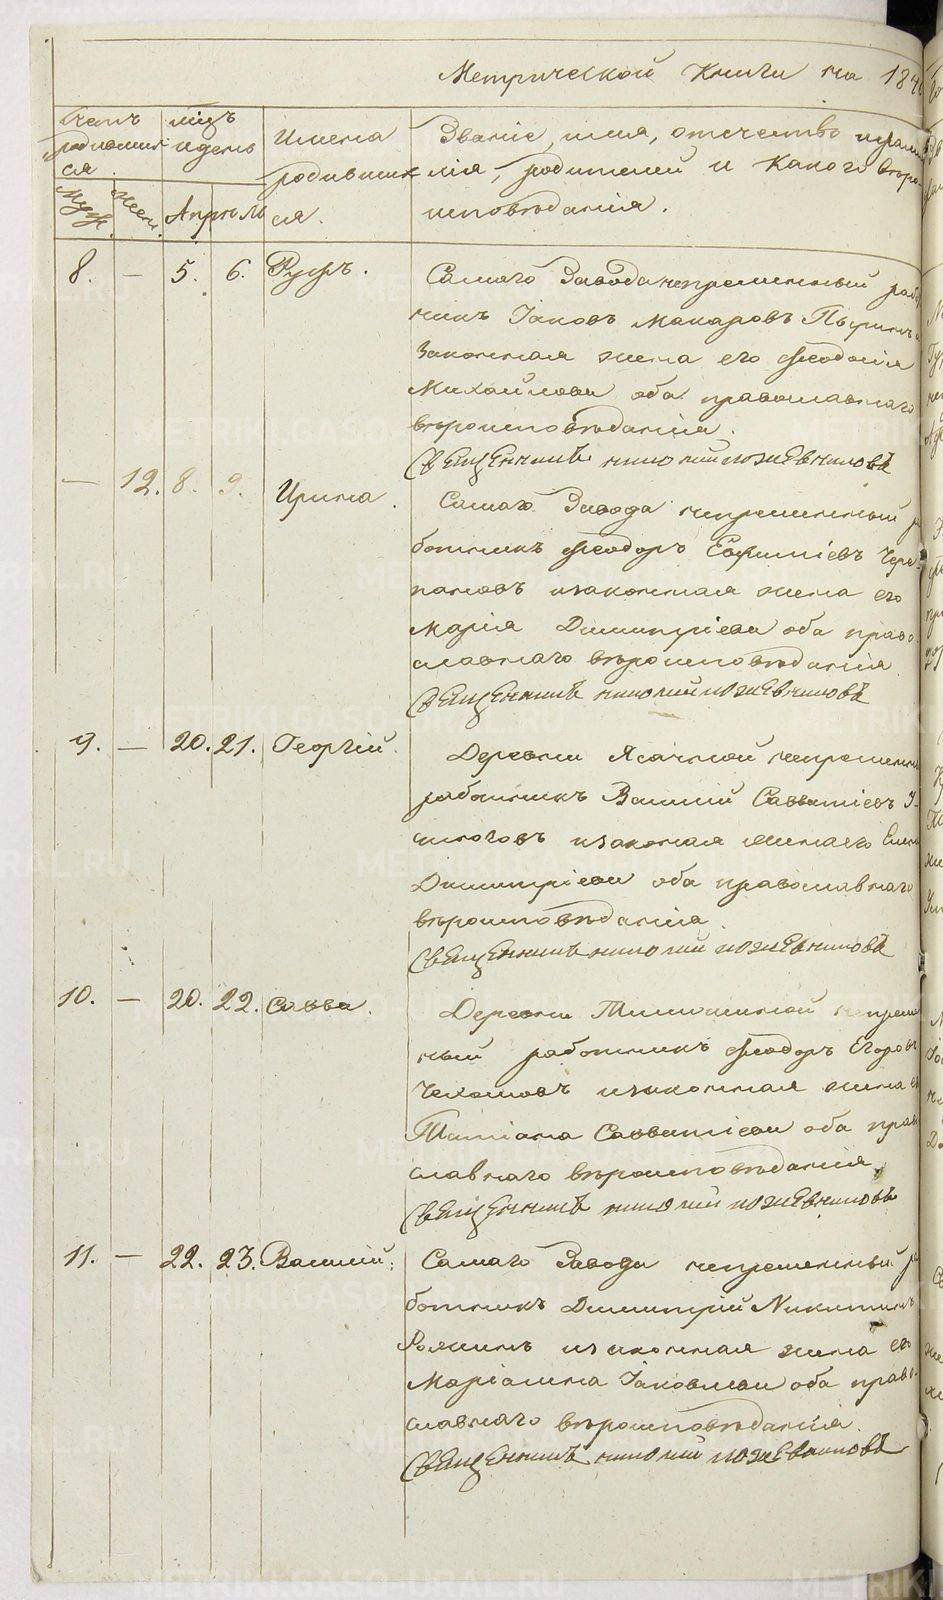 Метрической Книги на 184
Счетъ родившихся
Муж. Жен.
мѣсяцъ и день
Апрѣль
Имена родившихся.
Званіе, имя, отечество и фами
лія, родителей и Какого вѣро
исповѣданія.
8. — 5. 6. Руфъ.
Самаго Завода непременный рабо
никъ Іаковъ Макаровъ
Законная жена его Феодосія
Михайлова оба православнаго
вѣроисповѣданія.
Священникъ Николай
— 12. 8. 9. Ирина.
Самаго Завода непременный ра
ботникъ Феодоръ Евфиміевъ Чере
пановъ и законная жена его
Марія Димитріева оба право
славнаго вѣроисповѣданія
Священникъ Николай
9. — 20. 21. Георгій.
Деревни Ясачной непременны
работникъ Василій Савватіевъ У
и законая жена его Елена
Димитріева оба православнаго
вѣроисповѣданія
Священникъ Николай
10. — 20. 22. Савва.
Деревни непремен
ный работникъ Феодоръ Егоровъ
и законная жена ег
Татіана Савватіева оба прав
славнаго вѣроисповѣданія,
Священникъ Николай
11. — 22. 23. Василій.
Самаго Завода непременный ра
ботникъ Димитрій Никитинъ
и законная жена его
Маріамна Іаковлева оба право
славнаго вѣроисповѣданія.
Священникъ Николай
METRIKI.GASO-URAL.RU